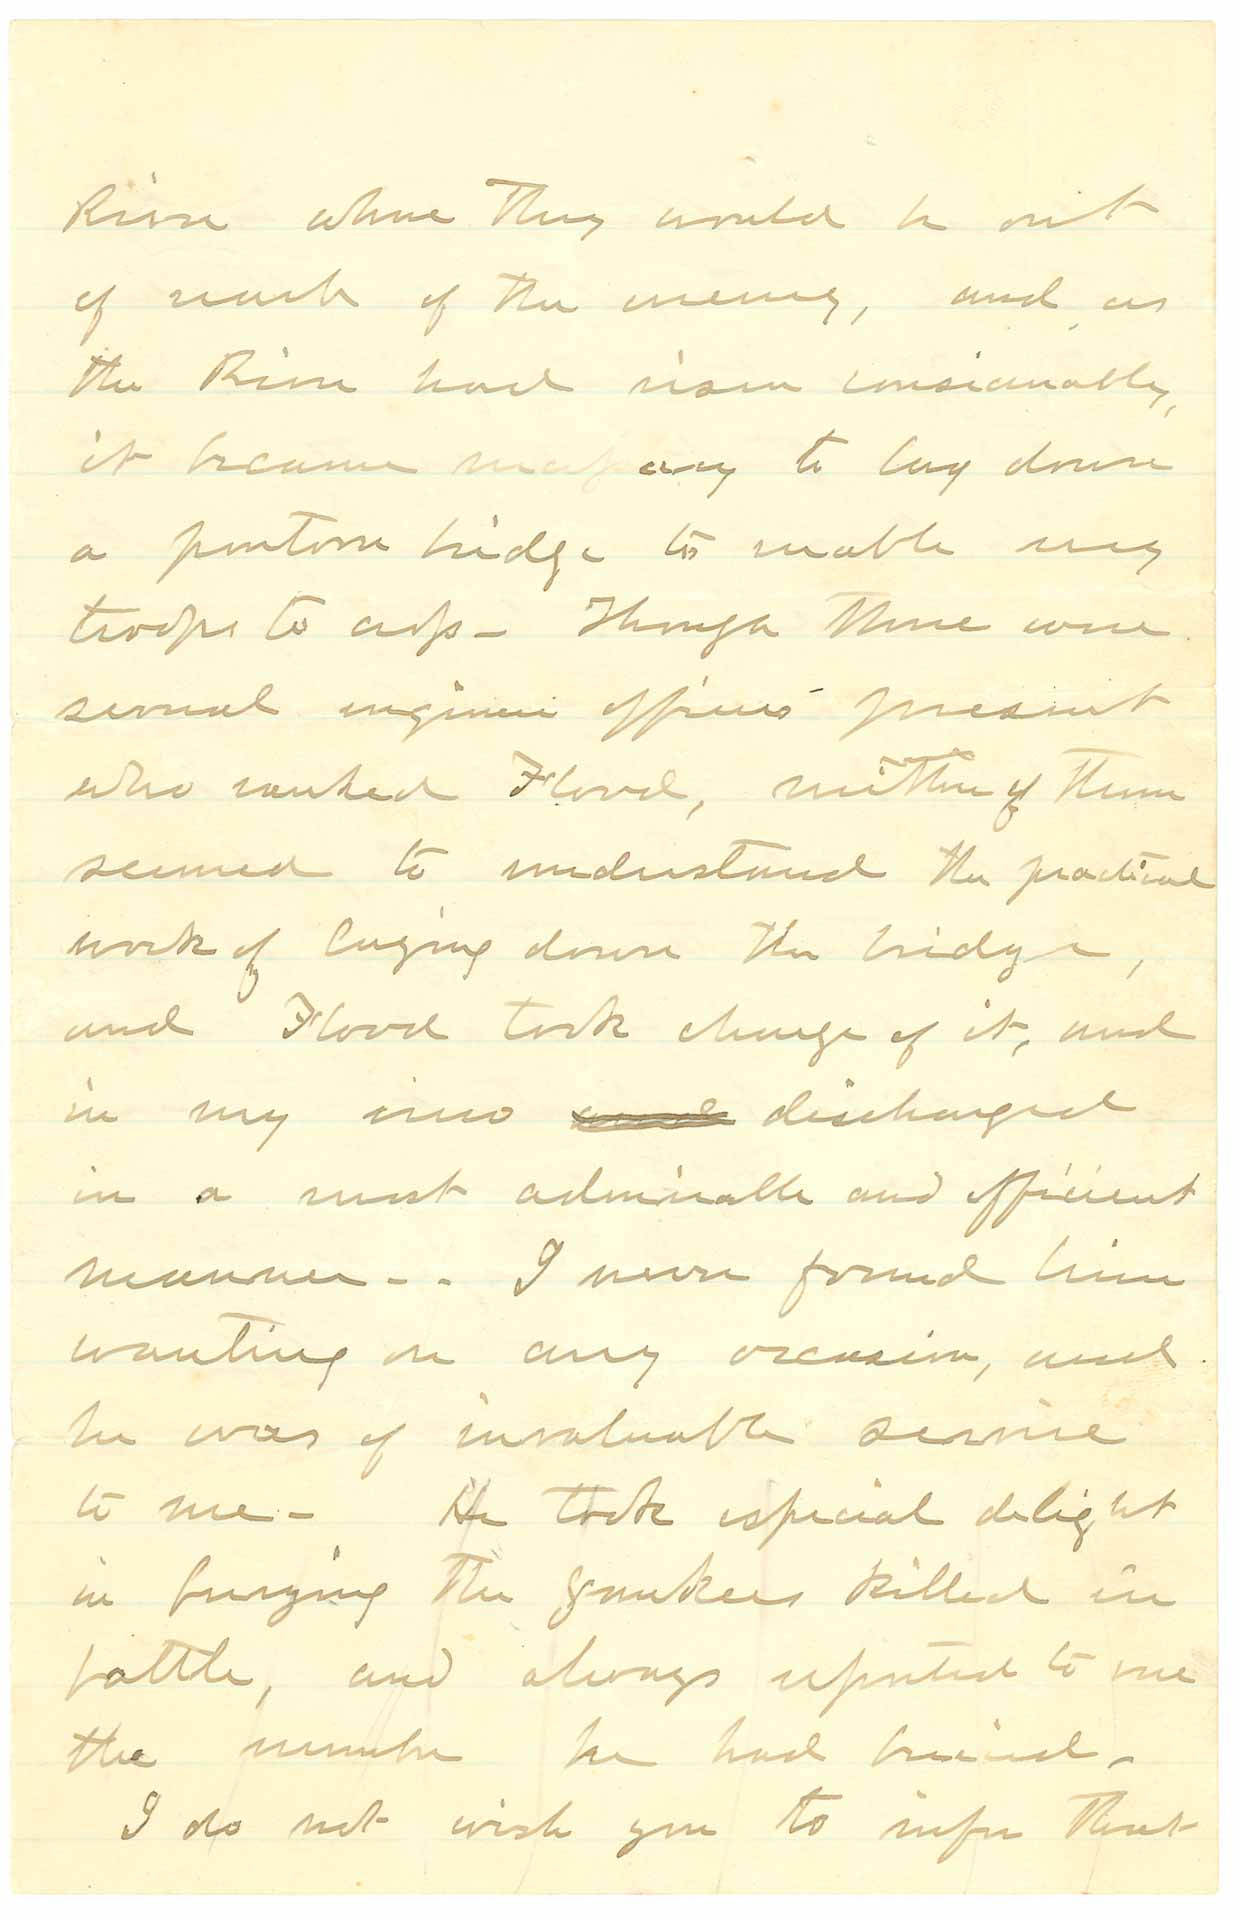 River where they would be out
of reach of the enemy, and as
the River had risen considerably,
it became necessary to lay down
a pontoon bridge to enable my
troops to cross - Though there were
several engineer officers present
who ranked Flood, neither of them
seemed to understand the practical
work of laying down the bridge,
and Flood took charge of it, and
in my view discharged
in a most admirable and efficient
manner - - I never found him
wanting on any occasion, and
he was of invaluable service
to me - He took especial delight
in burying the Yankees killed in
battle, and always reported to me
the number he had buried -
I do not wish you to infer that